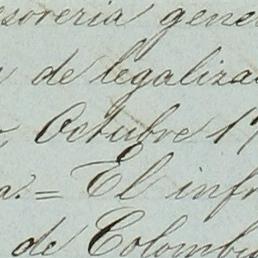 esoreria gene
de legaliza
Octubre 17
a.= El infr
de Colombi